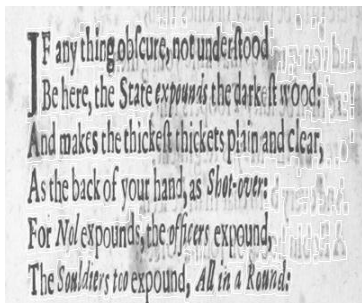 IF any thing obſcure, not underſtood
Be here, the State expounds the darkeſt wood:
And makes the thickeſt thickets plain and clear,
As the back of your hand, as Shot-over:
For Nol expounds, the officers expound,
The Souldiers too expound, All in a Round: